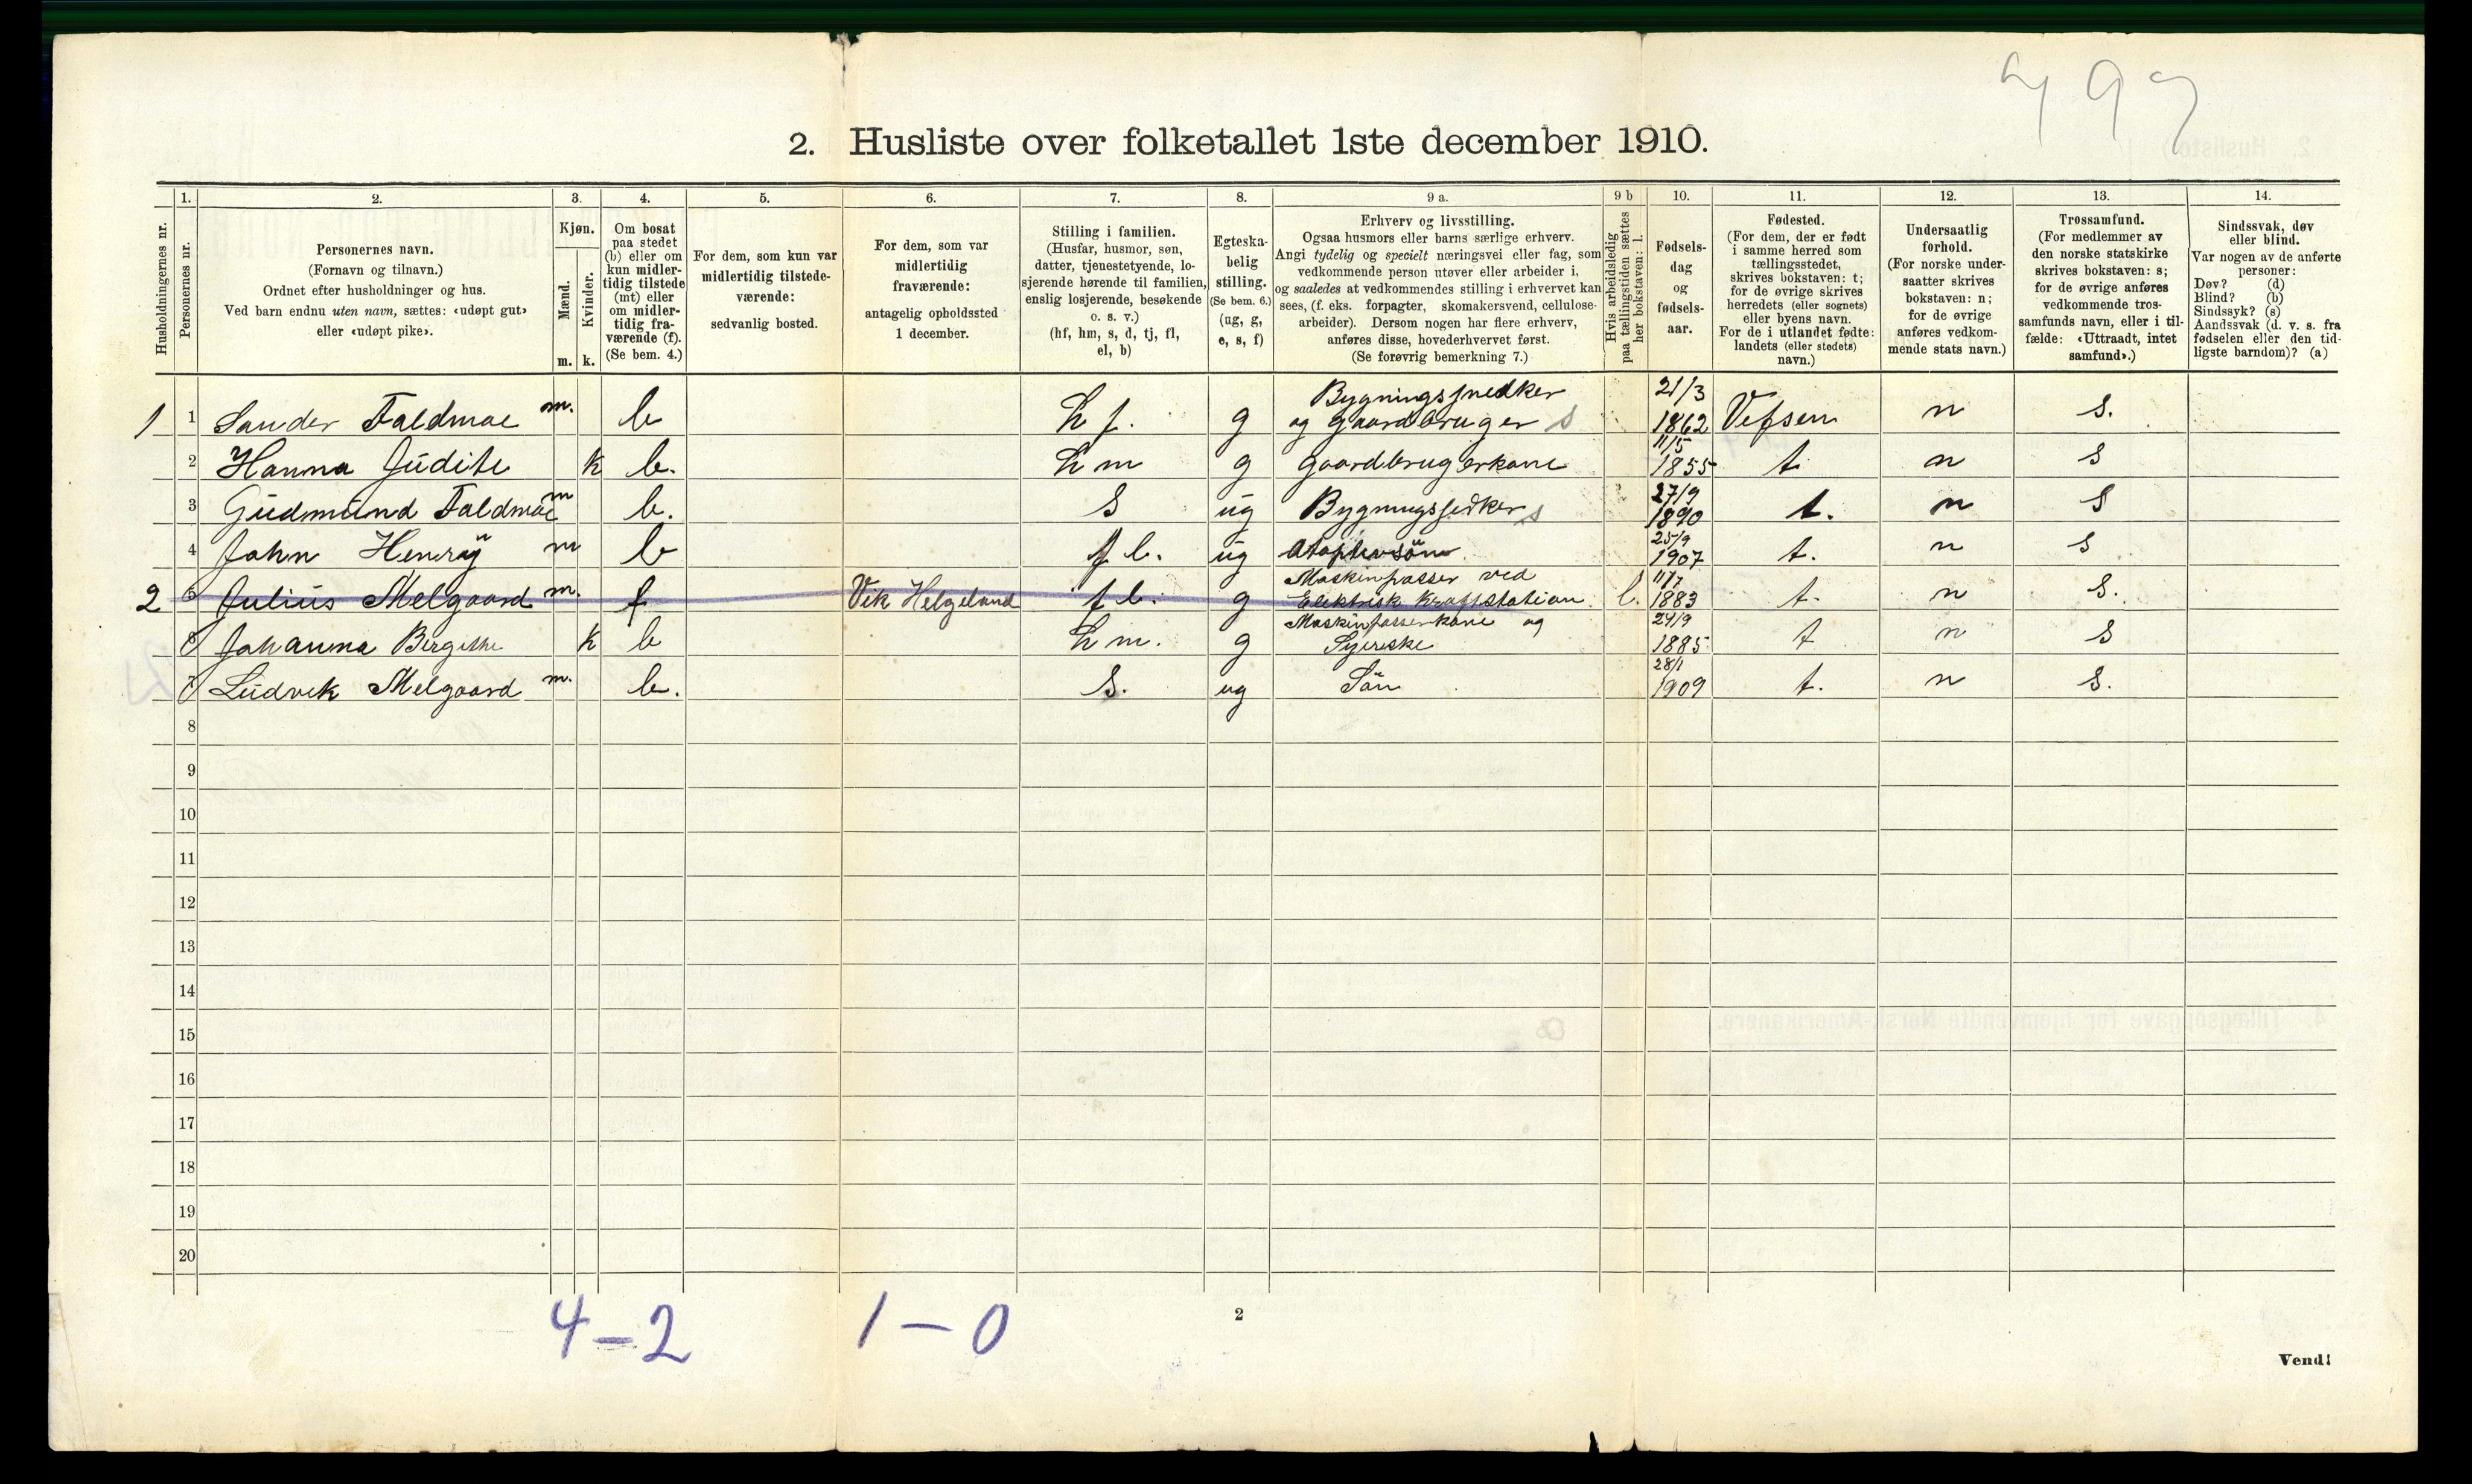 2. Husliste over folketallet 1ste december 1910.
Husholdningernes nr.
1.
Personernes nr.
2.
Personernes navn.
(Fornavn og tilnavn.)
Ordnet efter husholdninger og hus.
Ved barn endnu uten navn, sættes: «udøpt gut»
eller «udøpt pike».
3.
Kjøn.
Mænd.
Kvinder.
m. k.
4.
Om bosat
paa stedet
(b) eller om
kun midler-
tidig tilstede
(mt) eller
om midler-
tidig fra-
værende (f).
(Se bem. 4.)
5.
For dem, som kun var
midlertidig tilstede-
værende:
sedvanlig bosted.
6.
For dem, som var
midlertidig
fraværende:
antagelig opholdssted
1 december.
7.
Stilling i familien.
(Husfar, husmor, søn,
datter, tjenestetyende, lo-
sjerende hørende til familien,
enslig losjerende, besøkende
o. s. v.)
(hf, hm, s, d, tj, fl,
el, b)
8.
Egteska-
belig
stilling.
(Se bem. 6.)
(ug, g,
e, s, f)
9 a.
Erhverv og livsstilling.
Ogsaa husmors eller barns særlige erhverv.
Angi tydelig og specielt næringsvei eller fag, som
vedkommende person utøver eller arbeider i,
og saaledes at vedkommendes stilling i erhvervet kan
sees, (f. eks. forpagter, skomakersvend, cellulose-
arbeider). Dersom nogen har flere erhverv,
anføres disse, hovederhvervet først.
(Se forøvrig bemerkning 7.)
9 b
Hvis arbeidsledig
paa tællingstiden sættes
her bokstaven: l.
10.
Fødsels-
dag
og
fødsels-
aar.
11.
Fødested.
(For dem, der er født
i samme herred som
tællingsstedet,
skrives bokstaven: t;
for de øvrige skrives
herredets (eller sognets)
eller byens navn.
For de i utlandet fødte:
landets (eller stedets)
navn.)
12.
Undersaatlig
forhold.
(For norske under-
saatter skrives
bokstaven: n;
for de øvrige
anføres vedkom-
mende stats navn.)
13.
Trossamfund.
(For medlemmer av
den norske statskirke
skrives bokstaven: s;
for de øvrige anføres
vedkommende tros-
samfunds navn, eller i til-
fælde: «Uttraadt, intet
samfund».)
14.
Sindssvak, døv
eller blind.
Var nogen av de anførte
personer:
Døv? (d)
Blind? (b)
Sindssyk? (s)
Aandssvak (d. v. s. fra
fødselen eller den tid-
ligste barndom)? (a)
1 1 Sander Faldmoe m. b hf. g Bygningssnedker og gaardbruger s 21/3 1862 Vefsen n s.
2 Hanna Judite k b. hm g gaardbrugerkone 11/5 1855 t n s
3 Gudmund Faldmoe m b. s ug s 27/9 1890 t. n s
4 John Henry m b fl. ug 25/9 1907 t. n s
2 5 Julius Melgaard m. f Vik Helgeland fl. g Maskinpasser ved Elektrisk Kraftstation. l. 11/7 1883 t. n s.
6 Johanna Birgithe k b hm. g Maskinpasserkone og Syerske 24/9 1885 t n s
7 Ludvik Melgaard m. b. s. ug Sön 28/1 1909 t. n s.
8
9
10
11
12
13
14
15
16
17
18
19
20
4–2 1–0
2
Vend!